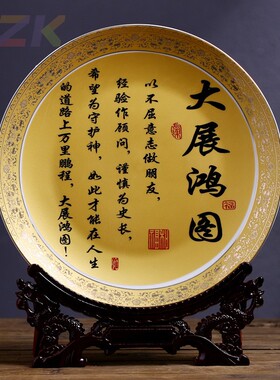 ZK
大展鸿图
以不屈意志做朋友，
经验作顾问，谨慎为史长，
希望为守护神，如此才能在人生
的道路上万里鹏程，大展鸿图！